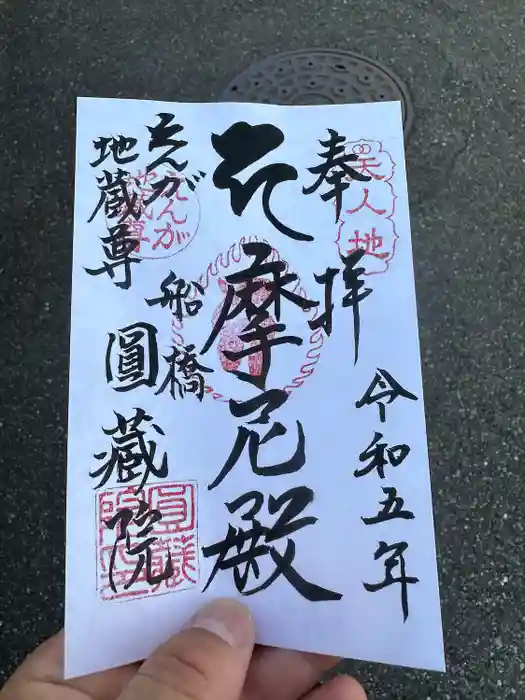 奉拝
天人地
令和五年
摩尼殿
えんが
地蔵尊
えんが
地蔵尊
船橋
圓藏院